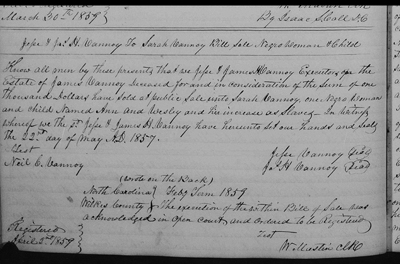 March 30th 1859
By Isaac S. Call D.C
Jesse & Jas. H. Vannoy To Sarah Vannoy Bill Sale Negro Woman & Child
Know all men by these presents that we Jesse & James H. Vannoy Executors on the
Estate of James Vannoy Deceased for and in consideration of the Sum of one
thousand Dollars have sold at public Sale unto Sarah Vannoy, one Negro Woman
and child Named Ann and Wesley and the increase as Slaves. In testimony
whereof we the sd. Jesse & James H. Vannoy have hereunto set our hands and seals
the 22d. day of May A.D. 1857.
Test
Jesse Vannoy Seal
Neil C. Vannoy
Jas. H Vannoy Seal
(wrote on the Back)
North Carolina} Feby Term 1859
Wilkes County} The execution of the within Bill of Sale was
acknowledged in Open court and ordered to be Registered
Registered
Test
April 2d 1859
W Mastin Clk